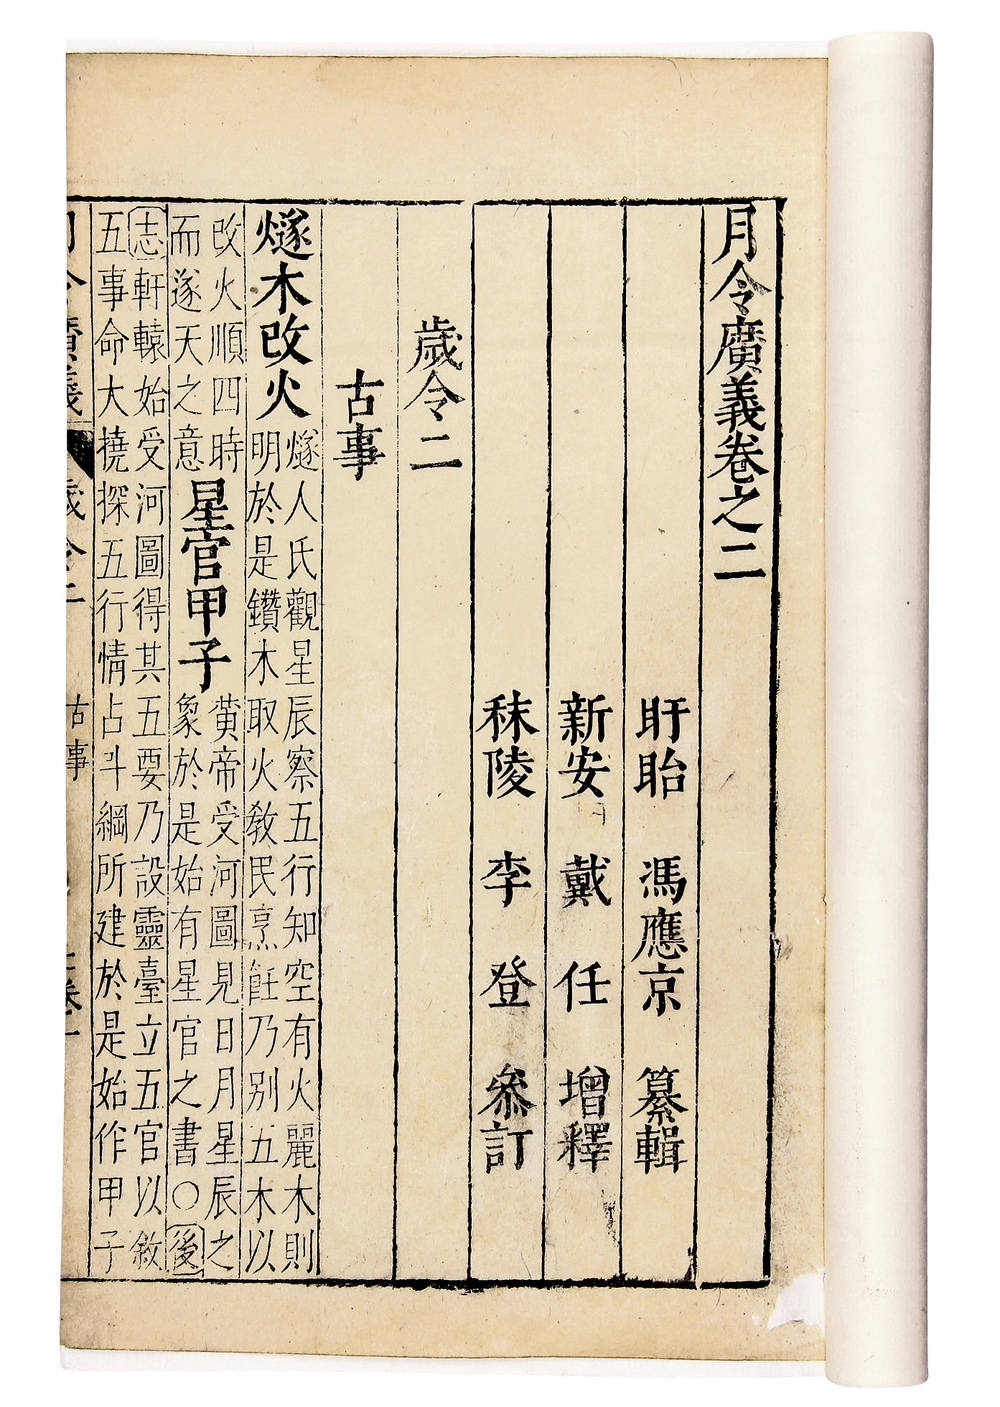 月令廣義卷之二
盱眙 馮應京 纂輯
新安 戴任 增釋
秣陵 李登 參訂
歲令二
古事
燧木改火
燧人氏觀星辰察五行知空有火麗木則
明於是鑽木取火教民烹飪乃别五木以
改火順四時
而遂天之意
星官甲子
黃帝受河圖見日月星辰之
象於是始有星官之書○後
志軒轅始受河圖得其五要乃設靈臺立五官以敘
五事命大撓探五行情占斗綱所建於是始作甲子
月令廣義 歲令二 古事